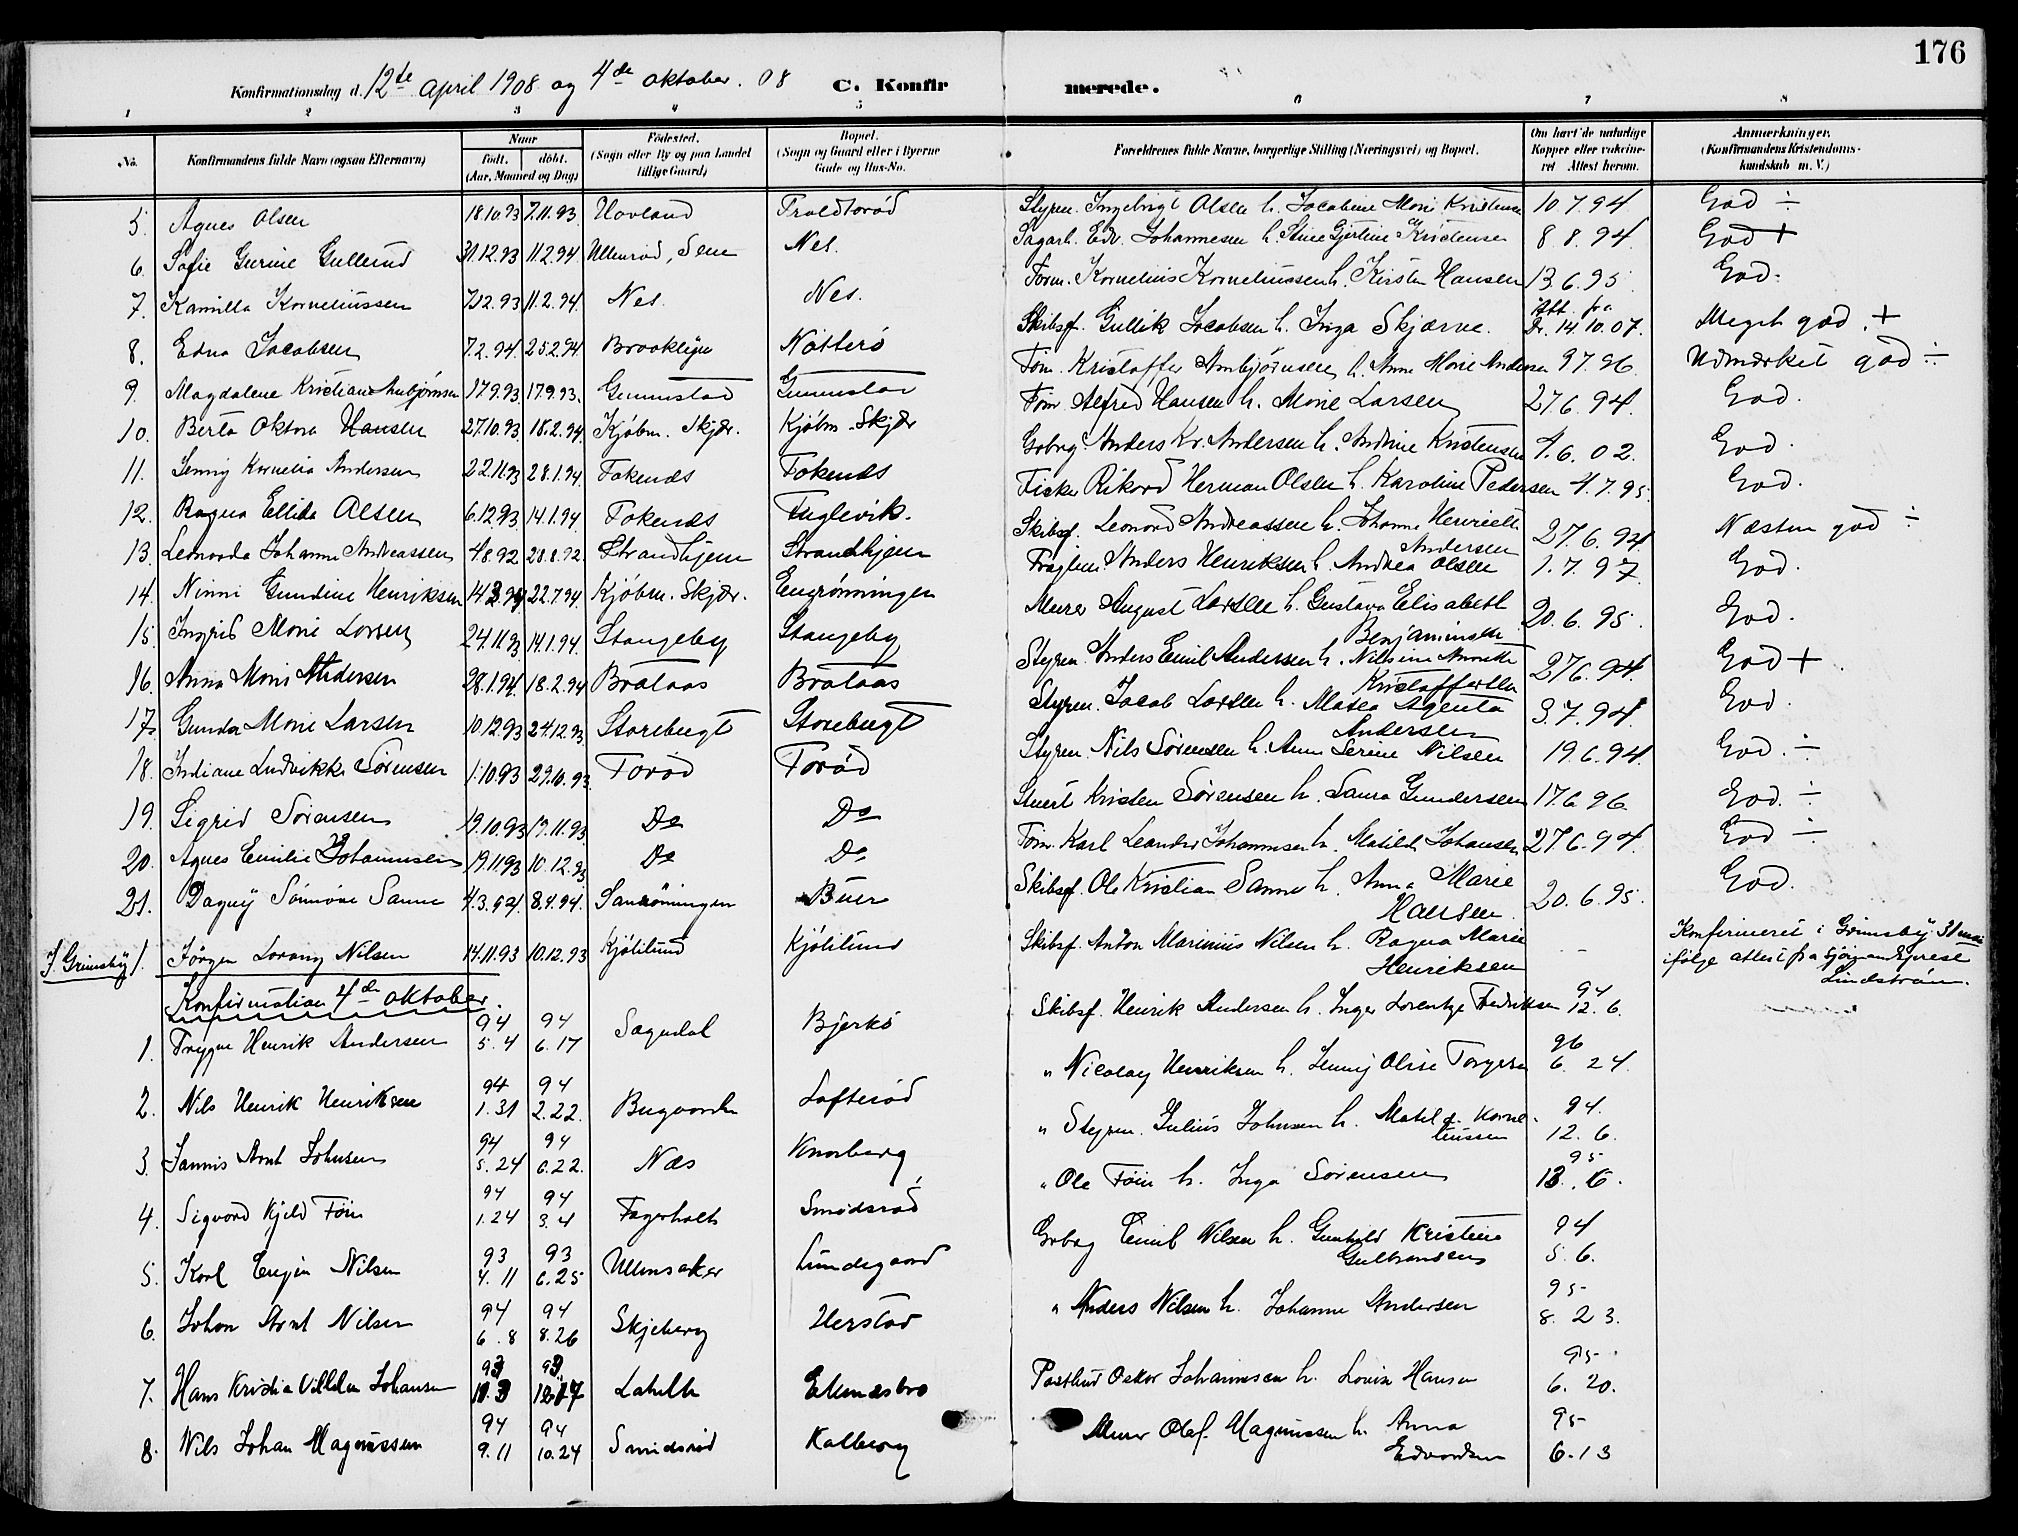 176
Konfirmationsdag d. 12te April 1908 og 4de oktober 08 C. Konfirmerede.
1 2 3 4 5 6 7 8
No. Konfirmandens fulde Navn (ogsaa Efternavn) Naar født. døbt. (Aar, Maaned og Dag) Fødested. (Sogn eller By og paa Landet tillige Gaard) Bopæl. (Sogn og Gaard eller i Byerne Gade og Hus-No. Forældrenes fulde Navne, borgerlige Stilling (Næringsvei) og Bopæl. Om havt de naturlige Kopper eller vakcineret Attest herom. Anmærkninger. (Konfirmandens Kristendomskundskab m. V.)
5. Agnes Olsen 18.10.93 7.11.93 Hovland Styrm. Ingebrigt Olsen h. Jacobine Marie Kristensen 10.7.94 God ÷
6. Sofie Gurine Gullerud 31.12.93 11.2.94 Ullerød, Sem Nes. Sagarb. Edv. Johannesen h. Stine Gjertine Kristensen 8.8.94 God +
7. Kamilla Korneliussen 7.12.93 11.2.94 Nes. Nes. Tøm. Kornelius Korneliussen h. Kirsten Hansen 13.6.95 God.
8. Edna Jacobsen 7.2.94 25.2.94 Brooklyn Nøtterø Skibsf. Gullik Jacobsen h. Inga Skjærve. Att. fra Dr. 14.10.07. Meget god. +
9. Magdalene Kristiane Anbjørnsen 17.9.93 17.9.93. Gunnestad Gunnestad Tøm. Kristoffer Anbjørnsen h. Anne Marie Andersen 9.7.96 Udmærket god ÷
10. Berta Oktora Hansen 27.10.93 18.2.94 Kjøbm. Skjær. Kjøbm. Skjær Tøm. Alfred Hansen h. Marie Larsen 27.6.94. God.
11. Jenny Kornelia Andersen 22.11.93 28.1.94 Tokenes Tokenes Gobrg. Anders Kr. Andersen h. Andrine Kristensen 4.6.02. God.
12. Ragna Ellida Olsen 6.12.93 14.1.94 Tokenes Fuglevik. Fisker Rikard Herman Olsen h. Karoline Pedersen 4.7.95 God.
13. Leonarda Johanne Andreassen 4.8.92 28.8.92 Strandhjem Strandhjem Skibsf. Leonard Andreassen h. Johanne Henriette Andersen 27.6.94 Næsten god ÷
14. Ninni Gundine Henriksen 14.3.94 22.7.94 Kjøbm. Skjær. Engrønningen Anders Henriksen h. Andrea Olsen 1.7.97 God.
15. Ingrid Marie Larsen 24.11.93 14.1.94. Stangeby Stangeby Murer August Larsen h. Gustava Elisabeth Benjaminsen 20.6.95. God.
16. Anna Marie Andersen 28.1.94. 18.2.94 Brataas Brataas Styrm. Anders Emil Andersen h. Nilsine Annette Kristoffersen 27.6.94. God +
17. Gunda Marie Larsen 10.12.93 24.12.93 Storebugt Storebugt Styrm. Jacob Larsen h. Matea Agenta Andersen 3.7.94. God.
18. Indiane Ludvikke Sørensen 1.10.93 29.10.93 Torød Torød Styrm. Nils Sørensen h. Anne Serine Nilsen 19.6.94. God. ÷
19. Sigrid Sørensen 19.10.93 19.11.93. Do Do Stuert Kristen Sørensen h. Laura Gundersen 17.6.96. God. ÷
20. Agnes Emilie Johannesen 19.11.93 10.12.93 Do Do Tøm. Karl Leander Johannesen h. Matilde Johansen 27.6.94. God ÷
21. Dagny Sanne 4.3.94 8.4.94. Sanrønningen Buer Skibsf. Ole Kristian Sanne h. Anna Marie Hansen 20.6.95. God.
(I Grimsby). Jørgen Lorang Nilsen 14.11.93 10.12.93 Kjølilund Kjølilund Skibsf. Anton Marinius Nilsen h. Ragna Marie Henriksen - Konfirmeret i Grimsby 31 mai
ifølge attest fra Sjømandsprest
Lindstrøm.
Konfirmation 4de oktober.
1. Trygve Henrik Andersen 94 5.4 94 6.17 Sagedal Bjerkø Skibsf. Henrik Andersen h. Inger Lorentze Fredriksen 94 12.6.
2. Nils Henrik Henriksen 94 1.31 94 2.22. Bugaarden Lofterød " Nicolay Henriksen h. Jenny Olise Torgersen 96 6.24.
3. Jannis Arnt Johnsen 94 5.24 94 6.22. Næs Knarberg " Styrm. Julius Johnsen h. Matilde Korneliussen 94. 12.6.
4. Sigvard Kjeld Føin 94 1.24 94 3.4 Fagerholt Smidsrød " Ole Føin h. Inga Sørensen 95 13.6.
5. Karl Nilsen 93 4.11 93 6.25 Ullensaker Lundsgaard Grbrg Emil Nilsen h. Gunhild Kristine Gulbrandsen 94 5.6.
6. Johan Arnt Nilsen 94 6.8 94 8.26 Skjeberg Herstad " Anders Nilsen h. Johanne Andersen 95 8.23.
7. Hans Kristian Villden Johansen 93 11.3 93 12.17 Labakken Ekenesbro Postbud Oskar Johannesen h. Lovise Hansen 95 6.20.
8. Nils Johan Magnussen 94 9.11 94 10.24 Smidsrød Kalberg Murer Olaf Magnussen h. Anna Edvardsen 95 6.13